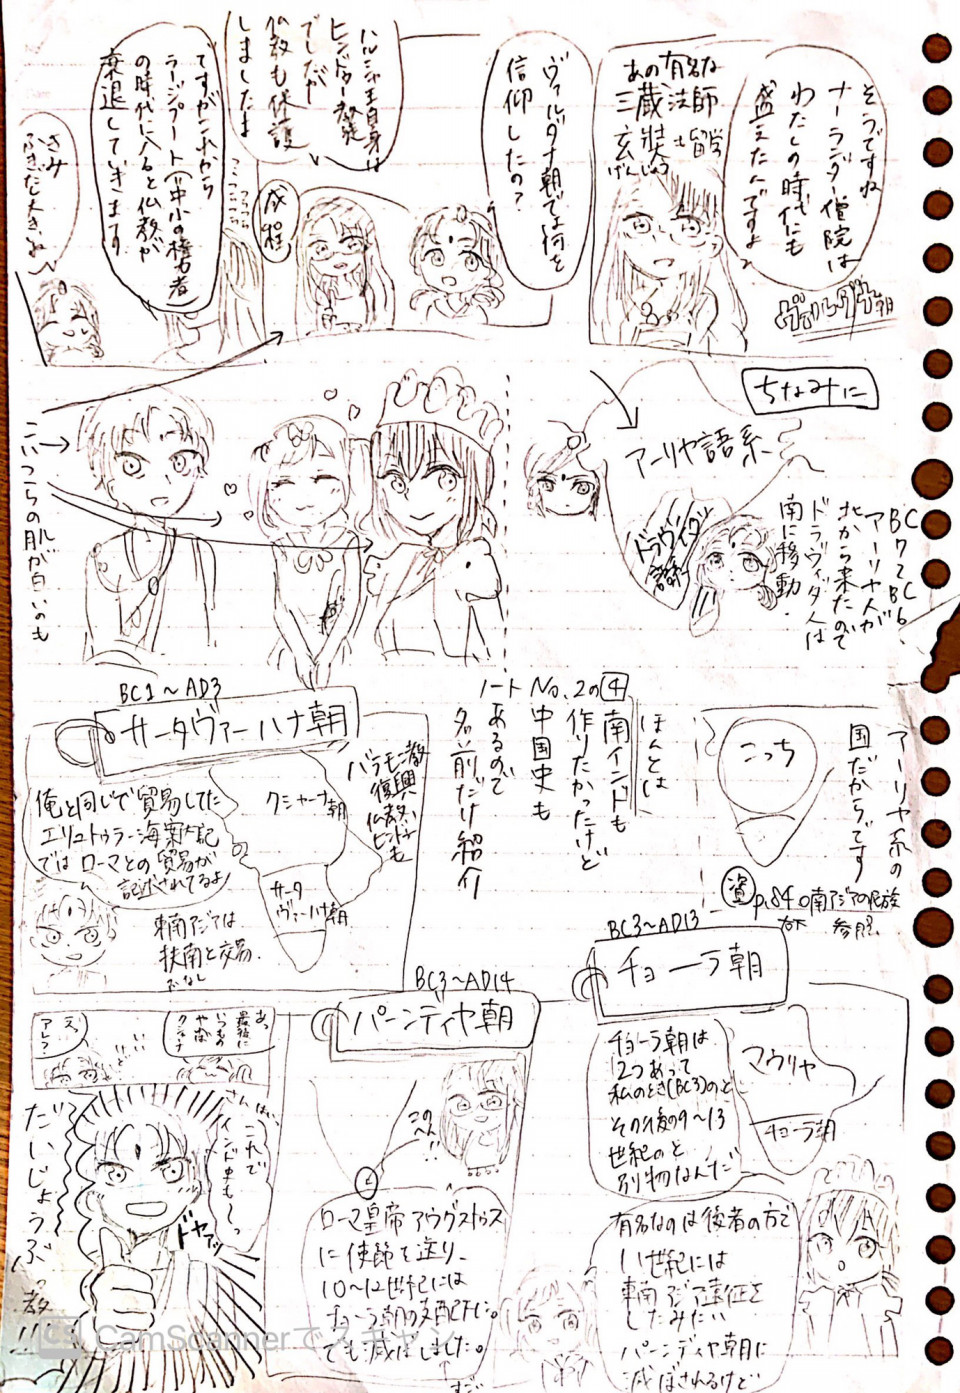 そうですね
ナーランダー僧院は
わたしの時代にも
盛えたんですよ
ヴァルダナ朝
あの有名な
三蔵法師
玄奘も留学
げんじょう
ヴァルダナ朝では何を
信仰したの?
ハルシャ王自身は
ヒンドゥー教徒
でしたが
仏教も保護
しましたよ
成程
ですがこれから
ラージプート(=中小の権力者
の時代に入ると仏教が
衰退していきます
ちなみに
アーリヤ語系
ドラヴィダ
語系
BC7~BC6、
アーリヤ人が
北から来たので
ドラヴィダ人は
南に移動.
こいつらの肌が白いのも
アーリヤ系の
国だからです
こっち
資 p.84の南アジアの民族
参照
ほんとは
④南インドも
作りたかったけど
No.2の中国史も
ノートあるので
名前だけ紹介
BC1~AD3
サータヴァーハナ朝
俺と同じで貿易してた
エリュトゥラー海案内記
では ローマとの貿易が
記述されてるよ!
東南アジアは
扶南と交易.
クシャーナ朝
サータ
ヴァーハナ朝
バラモン教
復興
仏教、ヒンドゥーも
BC3~AD13
チョーラ朝
チョーラ朝は
2つあって
私のとき(BC3)のと
その後の9~13
世紀のと
別物なんだ
マウリヤ
チョーラ朝
有名なのは後者の方で
11世紀には
東南アジア遠征を
したみたい
パーンディヤ朝に
滅ぼされるけど
BC3~AD14
パーンディヤ朝
このへん!!
ローマ皇帝アウグストゥス
に使節を送り、
10~12世紀には
チョーラ朝の支配下に。
でも滅ぼしました。
あっ
最後に
いつもの
やつば
えっ
アレ?
さんはい
これで
インド史も~っ
だいじょうぶっ教!!
ドヤァッ
CS CamScannerでスキャン